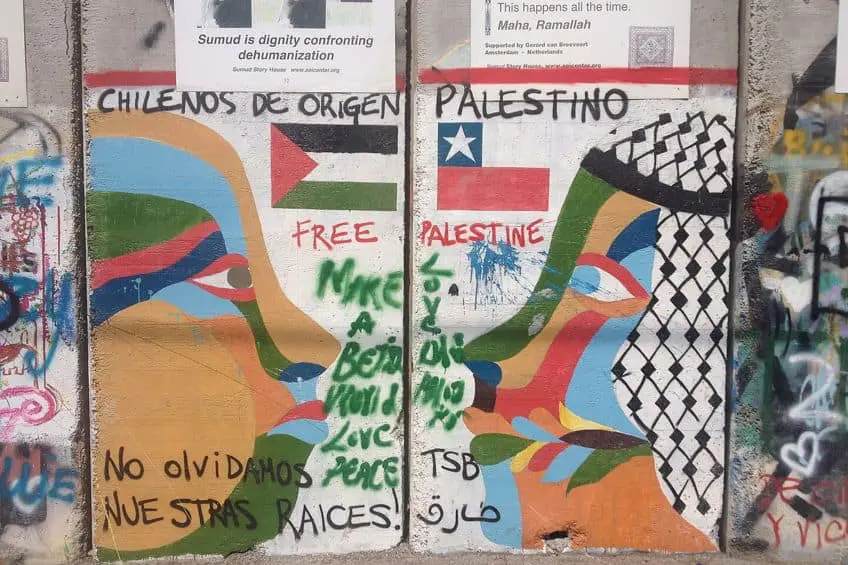 Sumud is dignity confronting
dehumanization
Sumud Story House www.aeicenter.org
This happens all the time.
Maha, Ramallah
Supported by Gerard van Broevoert
Amsterdam - Netherlands
Sumud Story House www.aeicenter.org
CHILENOS DE ORIGEN PALESTINO
FREE PALESTINE
MAKE
A
World
Love
PEACE
LOVE
No olviDAMOS
NUESTRAS RAICES!
TSB